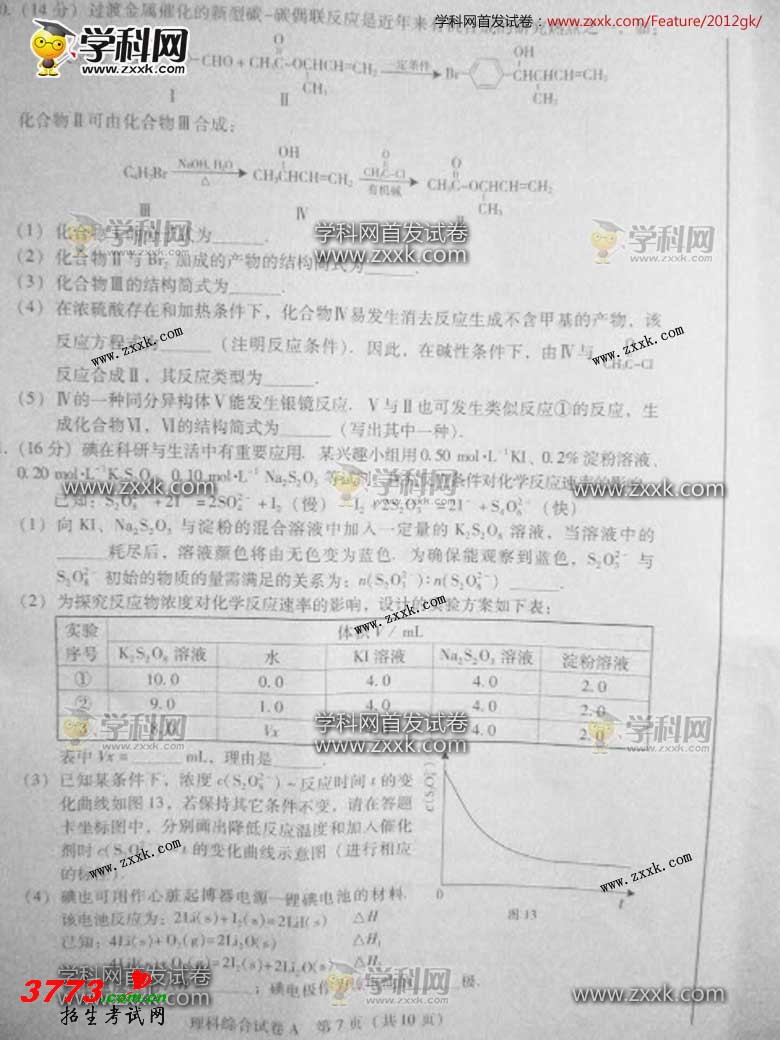 学科网首发试卷：www.zxxk.com/Feature/2012gk/
学科网
www.zxxk.com
(14分) 过渡金属催化的新型碳-碳偶联反应是近年来有机合成的研究热点之一
O OH
CHO + CH₃C-OCHCH=CH₂ 一定条件 Br CHCHCH=CH₂
CH₃ CH₃
Ⅰ Ⅱ
化合物Ⅱ可由化合物Ⅲ合成：
OH O O
C₄H₇Br NaOH, H₂O △ CH₃CHCH=CH₂ CH₃C-Cl 有机碱 CH₃C-OCHCH=CH₂
CH₃
Ⅲ Ⅳ Ⅱ
(1) 化合物 为______.
(2) 化合物Ⅱ与Br₂加成的产物的结构简式为______.
(3) 化合物Ⅲ的结构简式为______.
(4) 在浓硫酸存在和加热条件下，化合物Ⅳ易发生消去反应生成不含甲基的产物，该
反应方程式为______（注明反应条件）. 因此，在碱性条件下，由Ⅳ与 CH₃C-Cl
反应合成Ⅱ，其反应类型为______.
(5) Ⅳ的一种同分异构体Ⅴ能发生银镜反应. Ⅴ与Ⅱ也可发生类似反应①的反应，生
成化合物Ⅵ，Ⅵ的结构简式为______（写出其中一种）.
(16分) 碘在科研与生活中有重要应用. 某兴趣小组用0.50 mol·L⁻¹KI、0.2%淀粉溶液、
0.20 mol·L⁻¹K₂S₂O₈、0.10 mol·L⁻¹ Na₂S₂O₃等试剂，探究反应条件对化学反应速率的影响.
已知：S₂O₈²⁻ +2I⁻ =2SO₄²⁻ +I₂（慢） I₂ +2S₂O₃²⁻ =2I⁻ +S₄O₆²⁻（快）
(1) 向 KI、Na₂S₂O₃ 与淀粉的混合溶液中加入一定量的 K₂S₂O₈ 溶液，当溶液中的
______耗尽后，溶液颜色将由无色变为蓝色. 为确保能观察到蓝色，S₂O₃²⁻ 与
S₂O₈²⁻ 初始的物质的量需满足的关系为：n(S₂O₃²⁻)∶n(S₂O₈²⁻) ______.
(2) 为探究反应物浓度对化学反应速率的影响，设计的实验方案如下表：
实验序号 体积V / mL
K₂S₂O₈ 溶液 水 KI 溶液 Na₂S₂O₃ 溶液 淀粉溶液
① 10.0 0.0 4.0 4.0 2.0
② 9.0 1.0 4.0 4.0 2.0
③ 8.0 Vx 4.0 2.0
表中 Vx = ______ mL，理由是______.
(3) 已知某条件下，浓度 c(S₂O₈²⁻) ~ 反应时间 t 的变
化曲线如图 13，若保持其它条件不变，请在答题
卡坐标图中，分别画出降低反应温度和加入催化
剂时 c(S₂O₈²⁻) t 的变化曲线示意图（进行相应
的标注）.
c(S₂O₈²⁻)
0
t
图 13
(4) 碘也可用作心脏起搏器电源—锂碘电池的材料.
该电池反应为：2Li(s)+I₂(s)=2LiI(s) △H
已知：4Li(s)+O₂(g)=2Li₂O(s) △H₁
4LiI(s)+O₂(g)=2I₂(s)+2Li₂O(s) △H₂
；碘电极作 极.
理科综合试卷A 第 7 页（共 10 页）
学科网首发试卷
www.zxxk.com
3773.com.cn
招生考试网